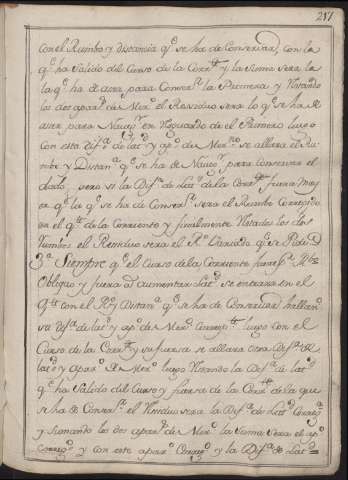 217
con el Rumbo y distancia q.e se ha de Conservar, con la
q.e ha Salido del Curso de la Corr.te y la Suma sera la
la q.e ha de aser para Conser.r la Primera y Restando
los dos apar.s de Mer.o el Ressiduo sera lo q.e se ha de
aser para Naveg.r en Resguardo de el Primero luego
con esta Dif.a de lat.d y ap.o de Mer.no se allara el Ru
mbo y Distan.a q.e se ha de Naveg.r para conservar el
dado, pero si la Dif.a de Lat.d de la Corr.te fuera may
or q.e la q.e se ha de Conser.r sera el Rumbo Corregido
en el q.te de la Corriente y finalmente Restados los dos
Rumbos el Residuo sera el
3.a Siempre q.e el Curso de la Corriente fuere p.r
Obliquo y fuera a aumentar Lat.d se entrara en el
q.te con el R.o y Distan.a q.e se ha de Conservar hallan
su Dif.a de lat.d y ap.o de Mer.o luego con el
Curso de la Corr.te y su fuersa se allara otra Dif.a de
lat.d y apar.o de Mer.o luego Restando la Dif.a de lat.d
q.e ha Salido del Curso y fuersa de la Corr.te de la que
se ha de Conser.r el Residuo sera la Dif.a de Lat.d Correg.a
y sumando los dos apar.s de Mer.o la Suma sera el ap.o
Correg.o y con este apar.o Correg.o y la Dif.a de Lat.d